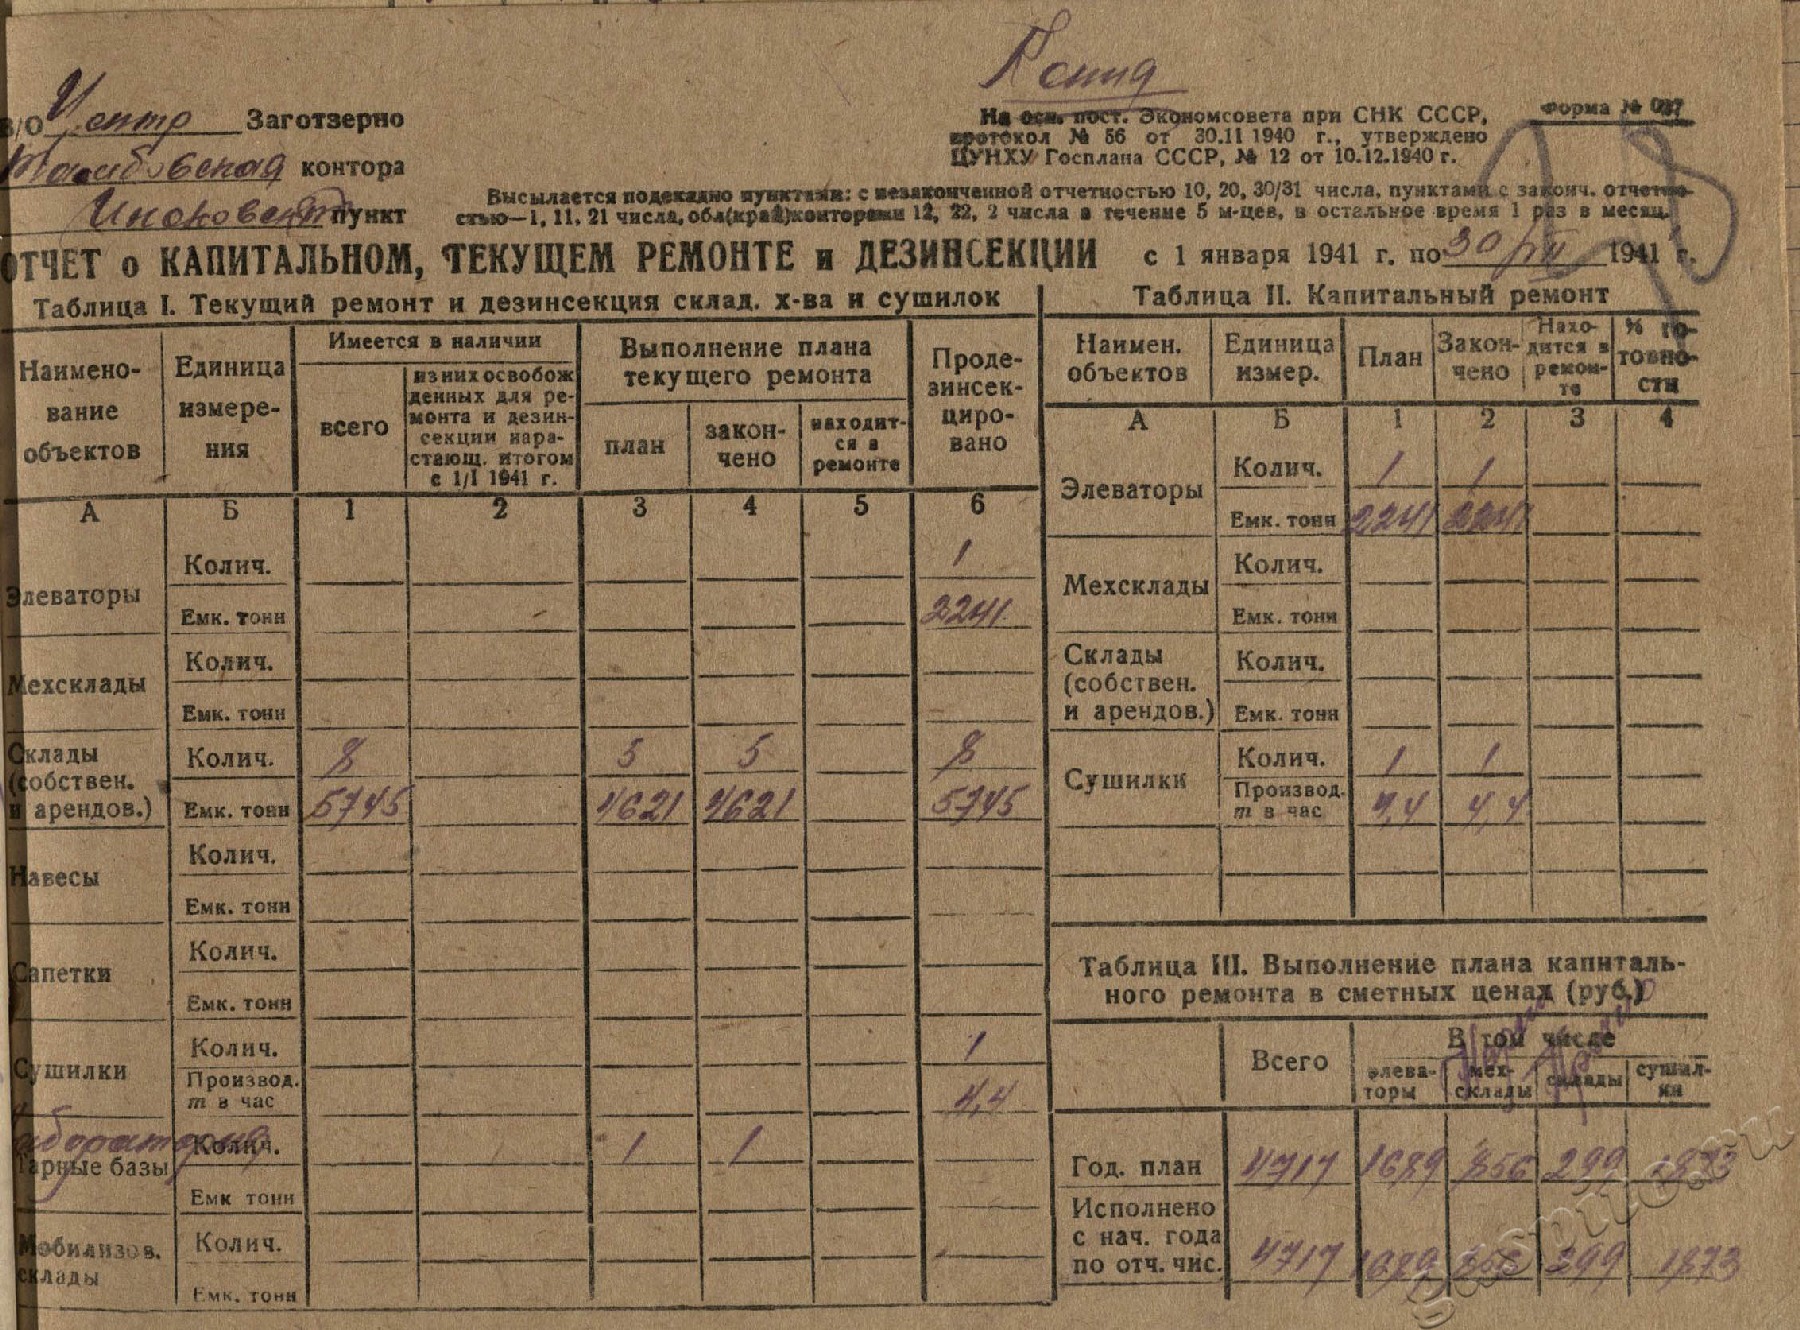 Копия
В/О Центр Заготзерно
Тамбовская контора
Иноковский пункт
На осн. пост. Экономсовета при СНК СССР,
протокол № 56 от 30.11 1940 г., утверждено
ЦУНХУ Госплана СССР, № 12 от 10.12.1940 г.
Форма №
Высылается подекадно пунктами: с незаконченной отчетностью 10, 20, 30/31 числа, пунктами с законч. отчетно-
стью—1, 11, 21 числа, обл(край)конторами 12, 22, 2 числа в течение 5 м-цев, в остальное время 1 раз в месяц.
ОТЧЕТ о КАПИТАЛЬНОМ, ТЕКУЩЕМ РЕМОНТЕ и ДЕЗИНСЕКЦИИ с 1 января 1941 г. по 30/VII 1941 г.
Таблица I. Текущий ремонт и дезинсекция склад. х-ва и сушилок
Наимено-
вание
объектов
Единица
измере-
ния
Имеется в наличии
всего
из них освобож
денных для ре-
монта и дезин-
секции нара-
стающ. итогом
с 1/I 1941 г.
Выполнение плана
текущего ремонта
план
закон-
чено
находит-
ся в
ремонте
Проде-
зинсек-
циро-
вано
А Б 1 2 3 4 5 6
Элеваторы
Колич. 1
Емк. тонн 2241
Мехсклады
Колич.
Емк. тонн
Склады
(собствен.
и арендов.)
Колич. 8 5 5 8
Емк. тонн 5745 4621 4621 5745
Навесы
Колич.
Емк. тонн
Сапетки
Колич.
Емк. тонн
Сушилки
Колич. 1
Производ.
т в час 4,4
лаборатория
Тарные базы
Колич. 1 1
Емк тонн
Мобилизов.
склады
Колич.
Емк. тонн
Таблица II. Капитальный ремонт
Наимен.
объектов
Единица
измер.
План
Закон-
чено
Нахо-
дится в
ремон-
те
% го-
товно-
сти
А Б 1 2 3 4
Элеваторы
Колич. 1 1
Емк. тонн 2241 2241
Мехсклады
Колич.
Емк. тонн
Склады
(собствен.
и арендов.)
Колич.
Емк. тонн
Сушилки
Колич. 1 1
Производ.
т в час 4,4 4,4
Таблица III. Выполнение плана капиталь-
ного ремонта в сметных ценах (руб.)
Всего
В том числе
элева-
торы
мех-
склады
склады
сушил-
ки
Год. план 4717 1689 856 299 1873
Исполнено
с нач. года
по отч. чис. 4717 1689 856 299 1873